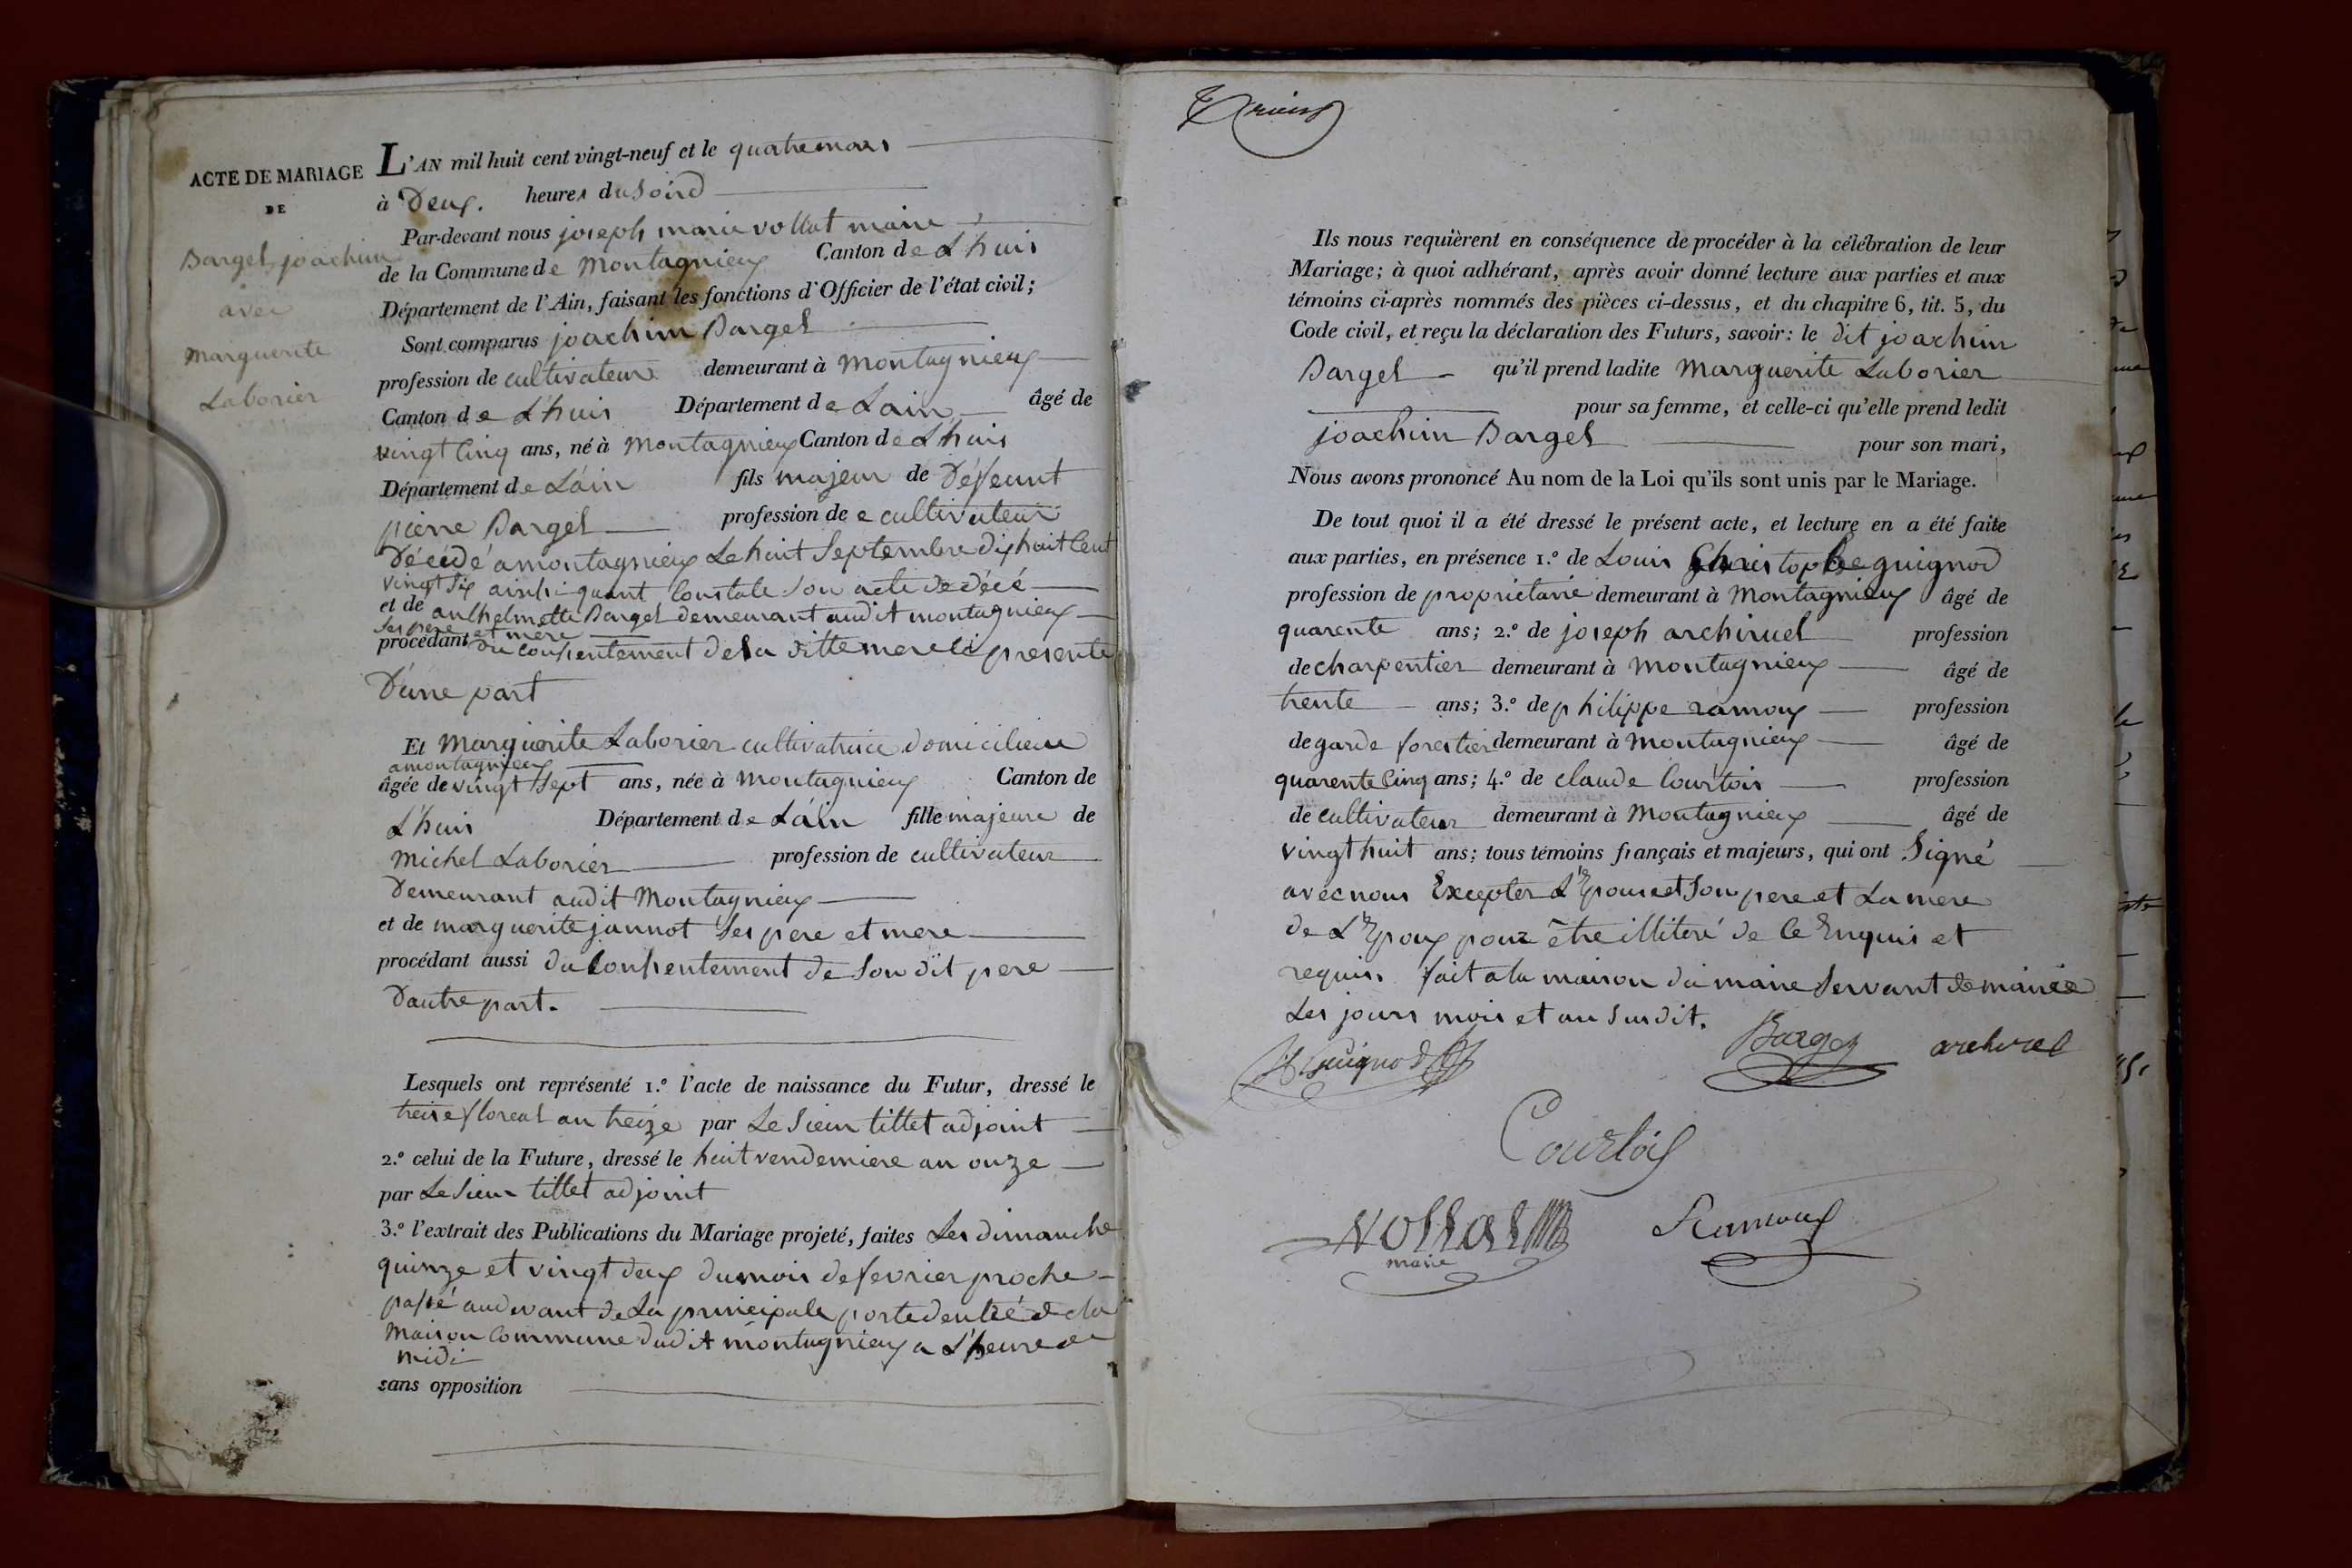 ACTE DE MARIAGE
DE
Bargel joachim
avec
marguerite
Laborier
L'AN mil huit cent vingt-neuf et le quatre mars
à Deux. heures du Soird
Par-devant nous joseph marie vollat maire
de la Commune de Montagnieux Canton de L'huis
Département de l'Ain, faisant les fonctions d'Officier de l'état civil;
Sont comparus joachim Bargel
profession de cultivateur demeurant à Montagnieux
Canton de L'huis Département de Lain âgé de
vingt Cinq ans, né à Montagnieux Canton de L'huis
Département de Láin fils majeur de Défeunt
pierre Bargel profession de e cultivateur
Décédé a montagnieux Le huit Septembre dix huit Cent
vingt Six ainsi quant Constate Son acte de décé
et de anthelmette Bargel demeurant audit montagnieux
Ses pere et mere
procédant du consentement de la ditte mere ici presente
D'une part
Et Marguerite Laborier cultivatrice domiciliée
a montagnieux
âgée de vingt Sept ans, née à Montagnieux Canton de
L'huis Département de Láin fille majeure de
Michel Laborier profession de cultivateur
Demeurant audit Montagnieux
et de marguerite jannot Ses pere et mere
procédant aussi du Consentement de Son dit pere
D'autre part.
Lesquels ont représenté 1.º l'acte de naissance du Futur, dressé le
treise floreal an treize par Le Sieur tillet adjoint
2.º celui de la Future, dressé le huit vendemiere an onze
par Le Sieur tillet adjoint
3.º l'extrait des Publications du Mariage projeté, faites Les dimanche
quinze et vingt deux du mois de fevrier proche
passé audevant de La principale porte dentré de la
Maison Commune dudit montagnieux a L'heure de
midi
sans opposition
Ils nous requièrent en conséquence de procéder à la célébration de leur
Mariage; à quoi adhérant, après avoir donné lecture aux parties et aux
témoins ci-après nommés des pièces ci-dessus, et du chapitre 6, tit. 5, du
Code civil, et reçu la déclaration des Futurs, savoir: le dit joachim
Bargel qu'il prend ladite Marguerite Laborier
pour sa femme, et celle-ci qu'elle prend ledit
joachim Bargel pour son mari,
Nous avons prononcé Au nom de la Loi qu'ils sont unis par le Mariage.
De tout quoi il a été dressé le présent acte, et lecture en a été faite
aux parties, en présence 1.º de Louis Christophe guignod
profession de propriétaire demeurant à Montagnieux âgé de
quarente ans; 2.º de joseph archiruel profession
de charpentier demeurant à Montagnieux âgé de
trente ans; 3.º de philippe ramoux profession
de garde forestier demeurant à Montagnieux âgé de
quarente Cinq ans; 4.º de claude Courtois profession
de cultivateur demeurant à Montagnieux âgé de
vingt huit ans; tous témoins français et majeurs, qui ont Signé
avec nous Excepter L'Epouse et Son pere et La mere
de L'Epoux pour être illiteré de Ce Enquis et
requis. fait a la maison du maire Servant de mairée
Les jours mois et an Susdit.
guignod
Bargel
archirel
Courtois
Vollat
maire
Ramoux